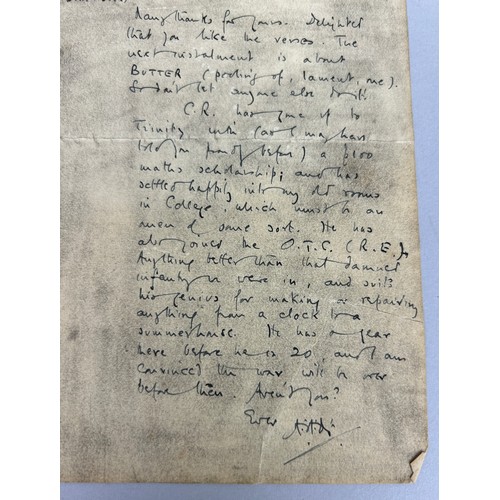 Many thanks for yours. Delighted
that you like the verses. The
next instalment is about
BUTTER (posting of, lament, me).
So don't let anyone else do it!
C.R. has gone up to
Trinity with (as I may have
told you before) a £100
maths scholarship; and has
settled happily into my old rooms
in College, which must be an
omen of some sort. He has
also joined the O.T.C. (R.E.),
Anything better than that damned
infantry we were in, and suits
his genius for making or repairing
anything from a clock to a
summerhouse. He has a year
here before he is 20, and I am
convinced the war will be over
before then. Aren't you?
Ever A.A.M.